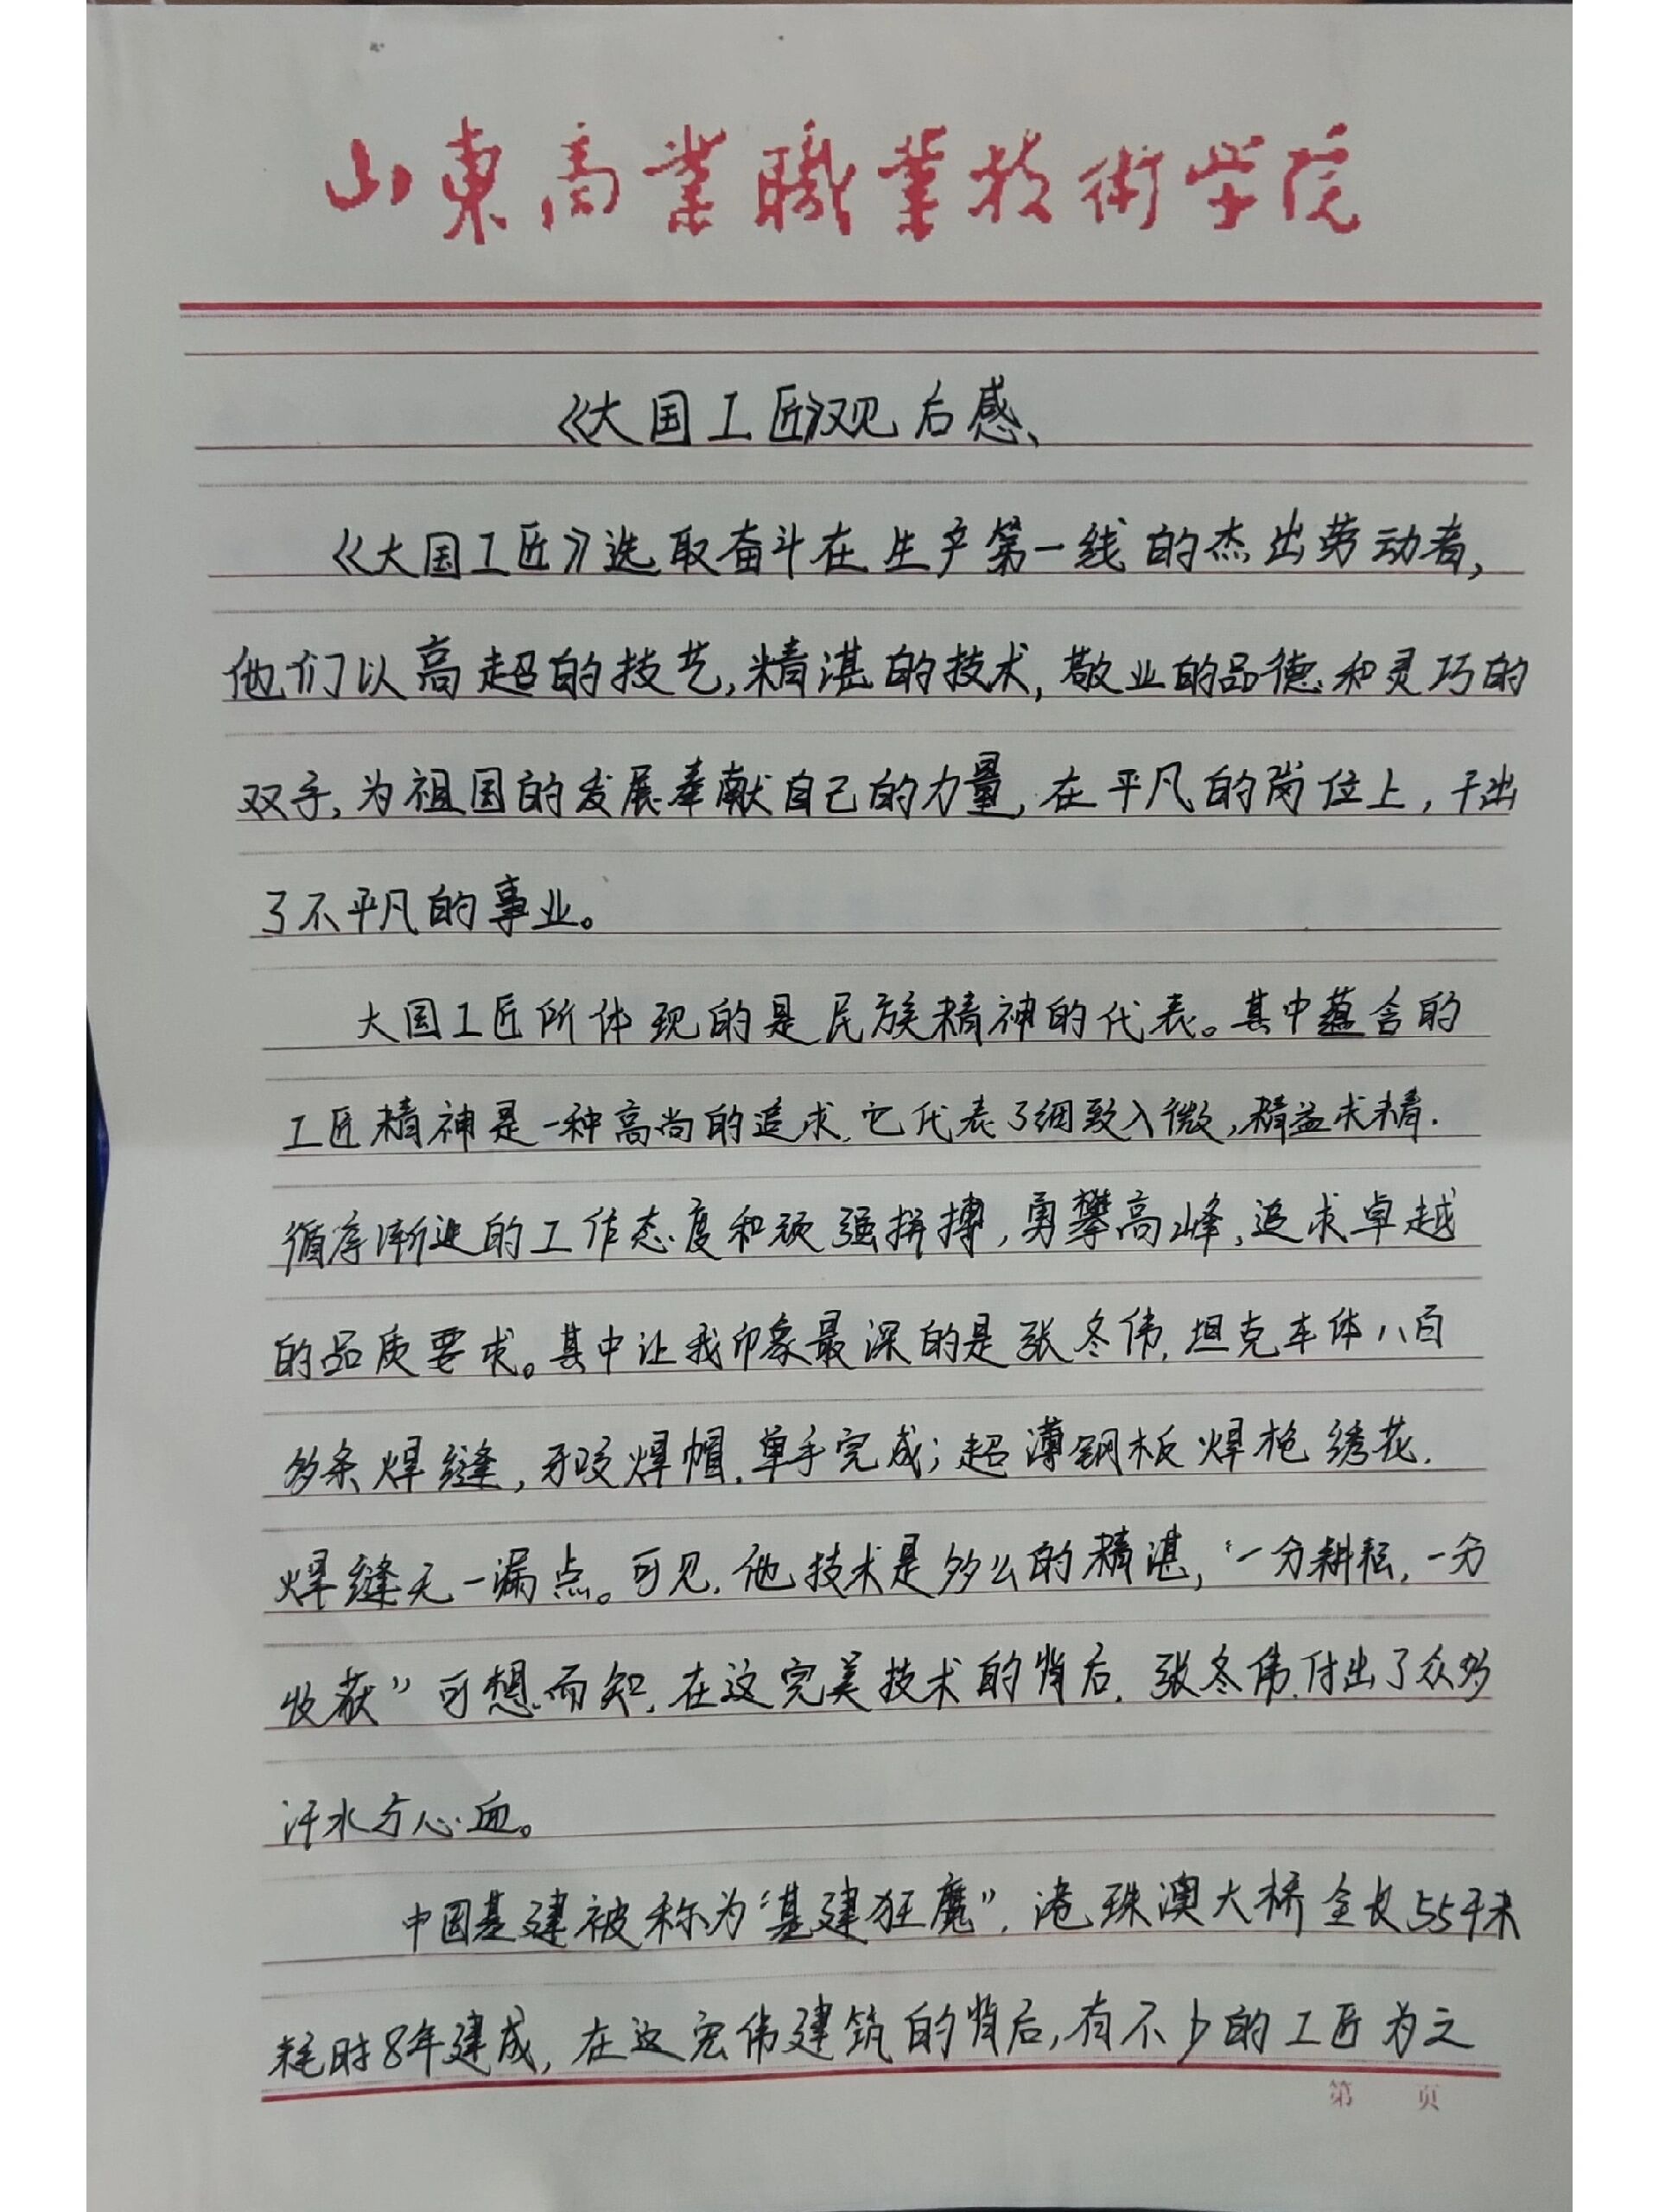 山東商業職業技術学院
《大国工匠》观后感、
《大国工匠》选取奋斗在生产第一线的杰出劳动者,
他们以高超的技艺,精湛的技术,敬业的品德和灵巧的
双手,为祖国的发展奉献自己的力量,在平凡的岗位上,干出
了不平凡的事业。
大国工匠所体现的是民族精神的代表。其中蕴含的
工匠精神是一种高尚的追求,它代表了细致入微,精益求精.
循序渐进的工作态度和顽强拼搏,勇攀高峰,追求卓越
的品质要求。其中让我印象最深的是张冬伟,坦克车体八百
多条焊缝,牙咬焊帽,单手完成;超薄钢板焊枪绣花.
焊缝无一漏点。可见,他技术是多么的精湛,“一分耕耘,一分
收获”可想而知,在这完美技术的背后,张冬伟付出了众多
汗水与心血。
中国基建被称为“基建狂魔”,港珠澳大桥全长55千米
耗时8年建成,在这宏伟建筑的背后,有不少的工匠为之
第 页